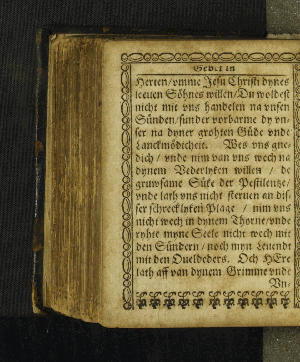 Gebet in
Herten / vmme Jesu Christi dynes
leeuen Söhnes willen / Du woldest
nicht mit vns handelen na vnsen
Sünden / sunder vorbarme dy vn-
ser na dyner grohten Güde vnde
Lanckmödicheit. Wes vns gne-
dich / vnde nim van vns wech na
dynem Vederlyken willen / de
gruwsame Süke der Pestilentz /
vnde lath vns nicht steruen an dis-
ser schrecklyken Plage / nim vns
nicht wech in dynem Thorne / vnde
ryhte myne Seele nicht wech mit
den Sündern / noch myn Leuendt
mit den Oueldeders. Och HEre
lath aff van dynem Grimme vnde
Vn-